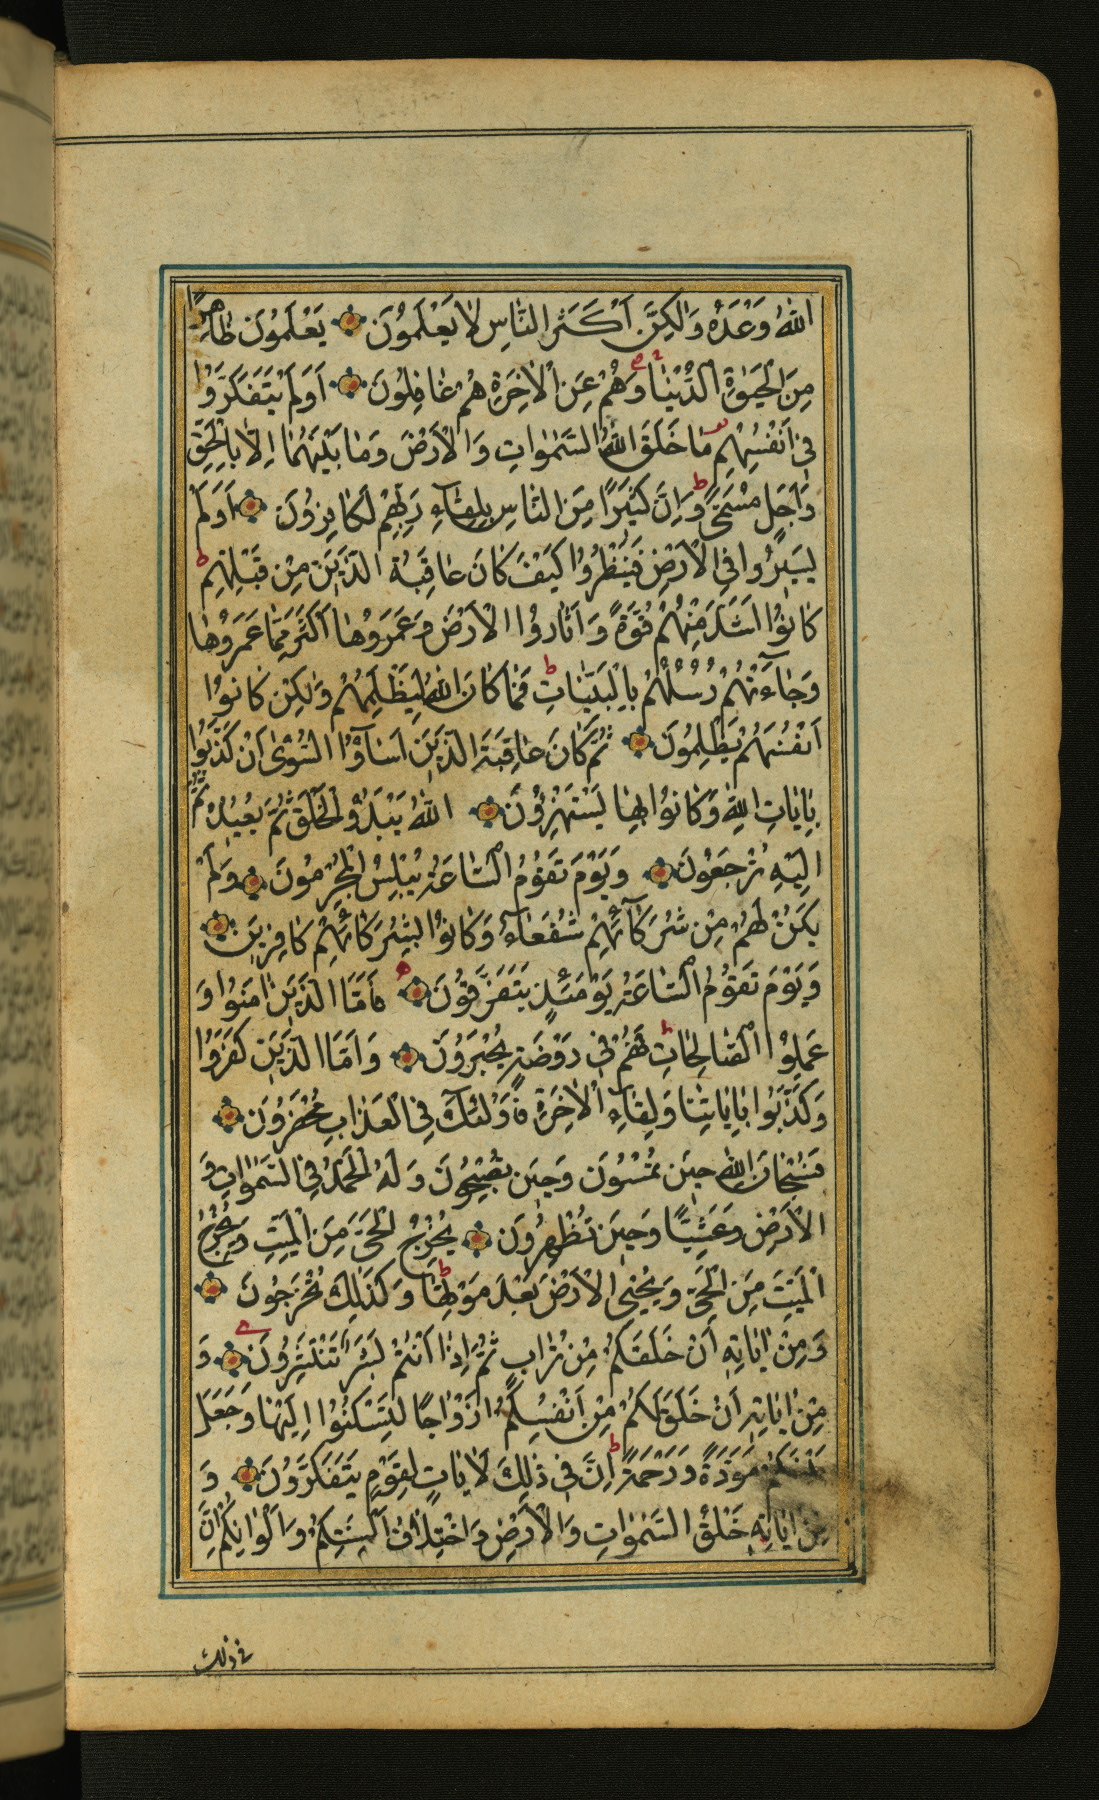 اللهُ وَعْدَهُ وَلٰكِنَّ اَكْثَرَ النّٰاسِ لاٰ يَعْلَمُونَ يَعْلَمُونَ ظٰاهِرًا
مِنَ الْحَيٰوةِ الدُّنْيٰا وَهُمْ عَنِ الْاٰخِرَةِ هُمْ غٰافِلُونَ اَوَلَمْ يَتَفَكَّرُوا
فِي اَنْفُسِهِمْ مٰا خَلَقَ اللهُ السَّمٰوٰاتِ وَالْاَرْضَ وَمٰا بَيْنَهُمٰا اِلّٰا بِالْحَقِّ
وَاَجَلٍ مُسَمًّى وَاِنَّ كَثِيرًا مِنَ النّٰاسِ بِلِقٰاءِ رَبِّهِمْ لَكٰافِرُونَ اَوَلَمْ
يَسِيرُوا فِي الْاَرْضِ فَيَنْظُرُوا كَيْفَ كٰانَ عٰاقِبَةُ الَّذِينَ مِنْ قَبْلِهِمْ
كٰانُوا اَشَدَّ مِنْهُمْ قُوَّةً وَاَثٰارُوا الْاَرْضَ وَعَمَرُوهٰا اَكْثَرَ مِمّٰا عَمَرُوهٰا
وَجٰاءَتْهُمْ رُسُلُهُمْ بِالْبَيِّنٰاتِ فَمٰا كٰانَ اللهُ لِيَظْلِمَهُمْ وَلٰكِنْ كٰانُوا
اَنْفُسَهُمْ يَظْلِمُونَ ثُمَّ كٰانَ عٰاقِبَةَ الَّذِينَ اَسٰاؤُا السُّوٓىٰ اَنْ كَذَّبُوا
بِاٰيٰاتِ اللهِ وَكٰانُوا بِهٰا يَسْتَهْزِؤُنَ اللهُ يَبْدَؤُ الْخَلْقَ ثُمَّ يُعِيدُهُ ثُمَّ
اِلَيْهِ تُرْجَعُونَ وَيَوْمَ تَقُومُ السّٰاعَةُ يُبْلِسُ الْمُجْرِمُونَ وَلَمْ
يَكُنْ لَهُمْ مِنْ شُرَكٰائِهِمْ شُفَعٰاءُ وَكٰانُوا بِشُرَكٰائِهِمْ كٰافِرِينَ
وَيَوْمَ تَقُومُ السّٰاعَةُ يَوْمَئِذٍ يَتَفَرَّقُونَ فَاَمَّا الَّذِينَ اٰمَنُوا وَ
عَمِلُوا الصّٰالِحٰاتِ فَهُمْ فِي رَوْضَةٍ يُحْبَرُونَ وَاَمَّا الَّذِينَ كَفَرُوا
وَكَذَّبُوا بِاٰيٰاتِنٰا وَلِقٰاءِ الْاٰخِرَةِ فَاُولٰئِكَ فِي الْعَذٰابِ مُحْضَرُونَ
فَسُبْحٰانَ اللهِ حِينَ تُمْسُونَ وَحِينَ تُصْبِحُونَ وَلَهُ الْحَمْدُ فِي السَّمٰوٰاتِ وَ
الْاَرْضِ وَعَشِيًّا وَحِينَ تُظْهِرُونَ يُخْرِجُ الْحَيَّ مِنَ الْمَيِّتِ وَيُخْرِجُ
الْمَيِّتَ مِنَ الْحَيِّ وَيُحْيِي الْاَرْضَ بَعْدَ مَوْتِهٰا وَكَذٰلِكَ تُخْرَجُونَ
وَمِنْ اٰيٰاتِهِ اَنْ خَلَقَكُمْ مِنْ تُرٰابٍ ثُمَّ اِذٰا اَنْتُمْ بَشَرٌ تَنْتَشِرُونَ وَ
مِنْ اٰيٰاتِهِ اَنْ خَلَقَ لَكُمْ مِنْ اَنْفُسِكُمْ اَزْوٰاجًا لِتَسْكُنُوا اِلَيْهٰا وَجَعَلَ
بَيْنَكُمْ مَوَدَّةً وَرَحْمَةً اِنَّ فِي ذٰلِكَ لَاٰيٰاتٍ لِقَوْمٍ يَتَفَكَّرُونَ وَ
مِنْ اٰيٰاتِهِ خَلْقُ السَّمٰوٰاتِ وَالْاَرْضِ وَاخْتِلٰافُ اَلْسِنَتِكُمْ وَاَلْوٰانِكُمْ اِنَّ
في ذلك